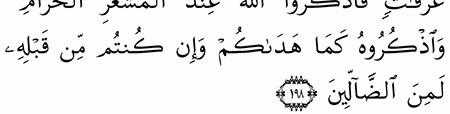 عَرَفَٰتٍ فَٱذْكُرُوا۟ ٱللَّهَ عِندَ ٱلْمَشْعَرِ ٱلْحَرَامِ
وَٱذْكُرُوهُ كَمَا هَدَىٰكُمْ وَإِن كُنتُم مِّن قَبْلِهِۦ
لَمِنَ ٱلضَّآلِّينَ ﴿١٩٨﴾